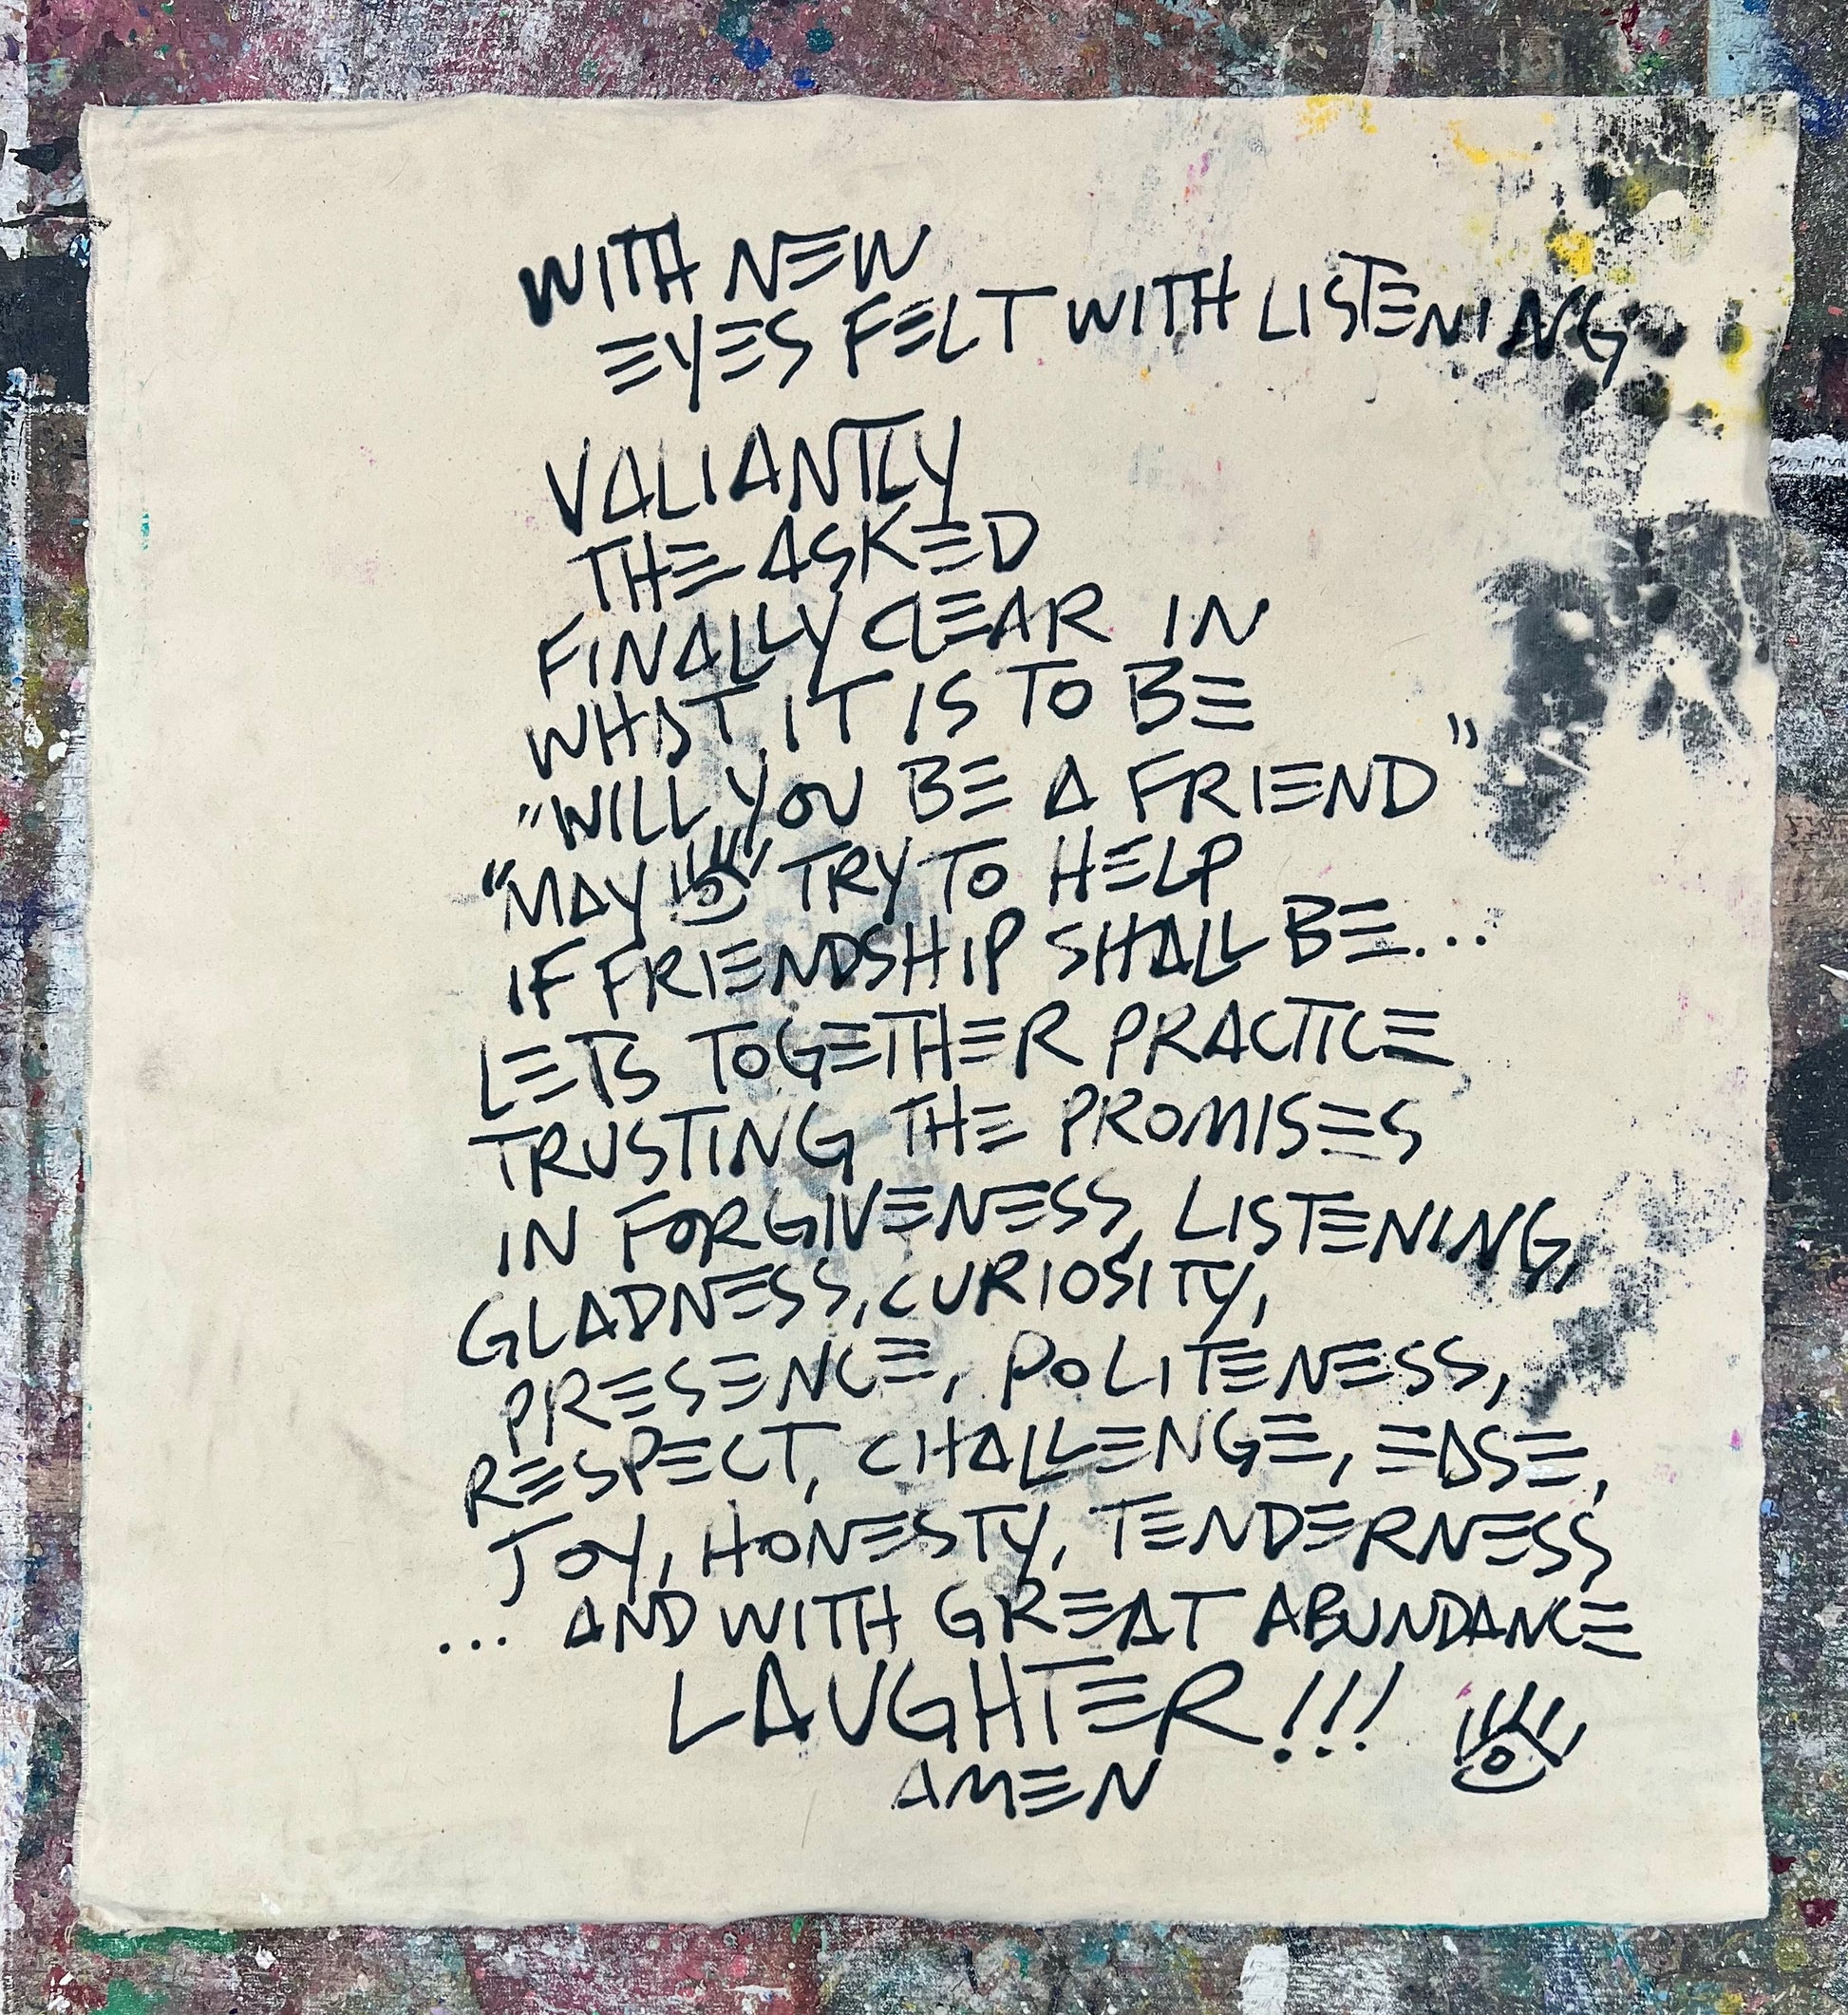 WITH NEW
EYES FELT WITH LISTENING
VALIANTLY
THE ASKED
FINALLY CLEAR IN
WHAT IT IS TO BE
"WILL YOU BE A FRIEND"
"MAY TRY TO HELP
IF FRIENDSHIP SHALL BE...
LETS TOGETHER PRACTICE,
TRUSTING THE PROMISES
IN FORGIVENESS, LISTENING,
GLADNESS, CURIOSITY,
PRESENCE, POLITENESS,
RESPECT, CHALLENGE, EASE,
JOY, HONESTY, TENDERNESS
... AND WITH GREAT ABUNDANCE
LAUGHTER!!!
AMEN